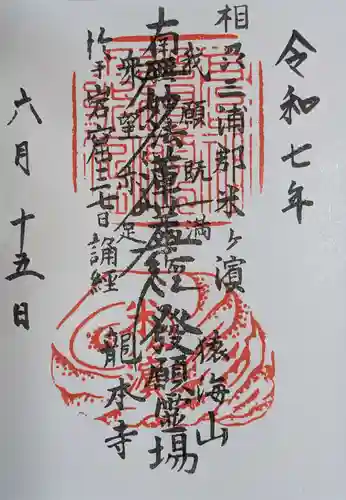 令和七年
相州三浦郡米ヶ濱
猿海山
我願既満
南無妙法蓮華経
發願霊場
衆望亦足
於于岩窟三七日誦経
龍本寺
六月十五日